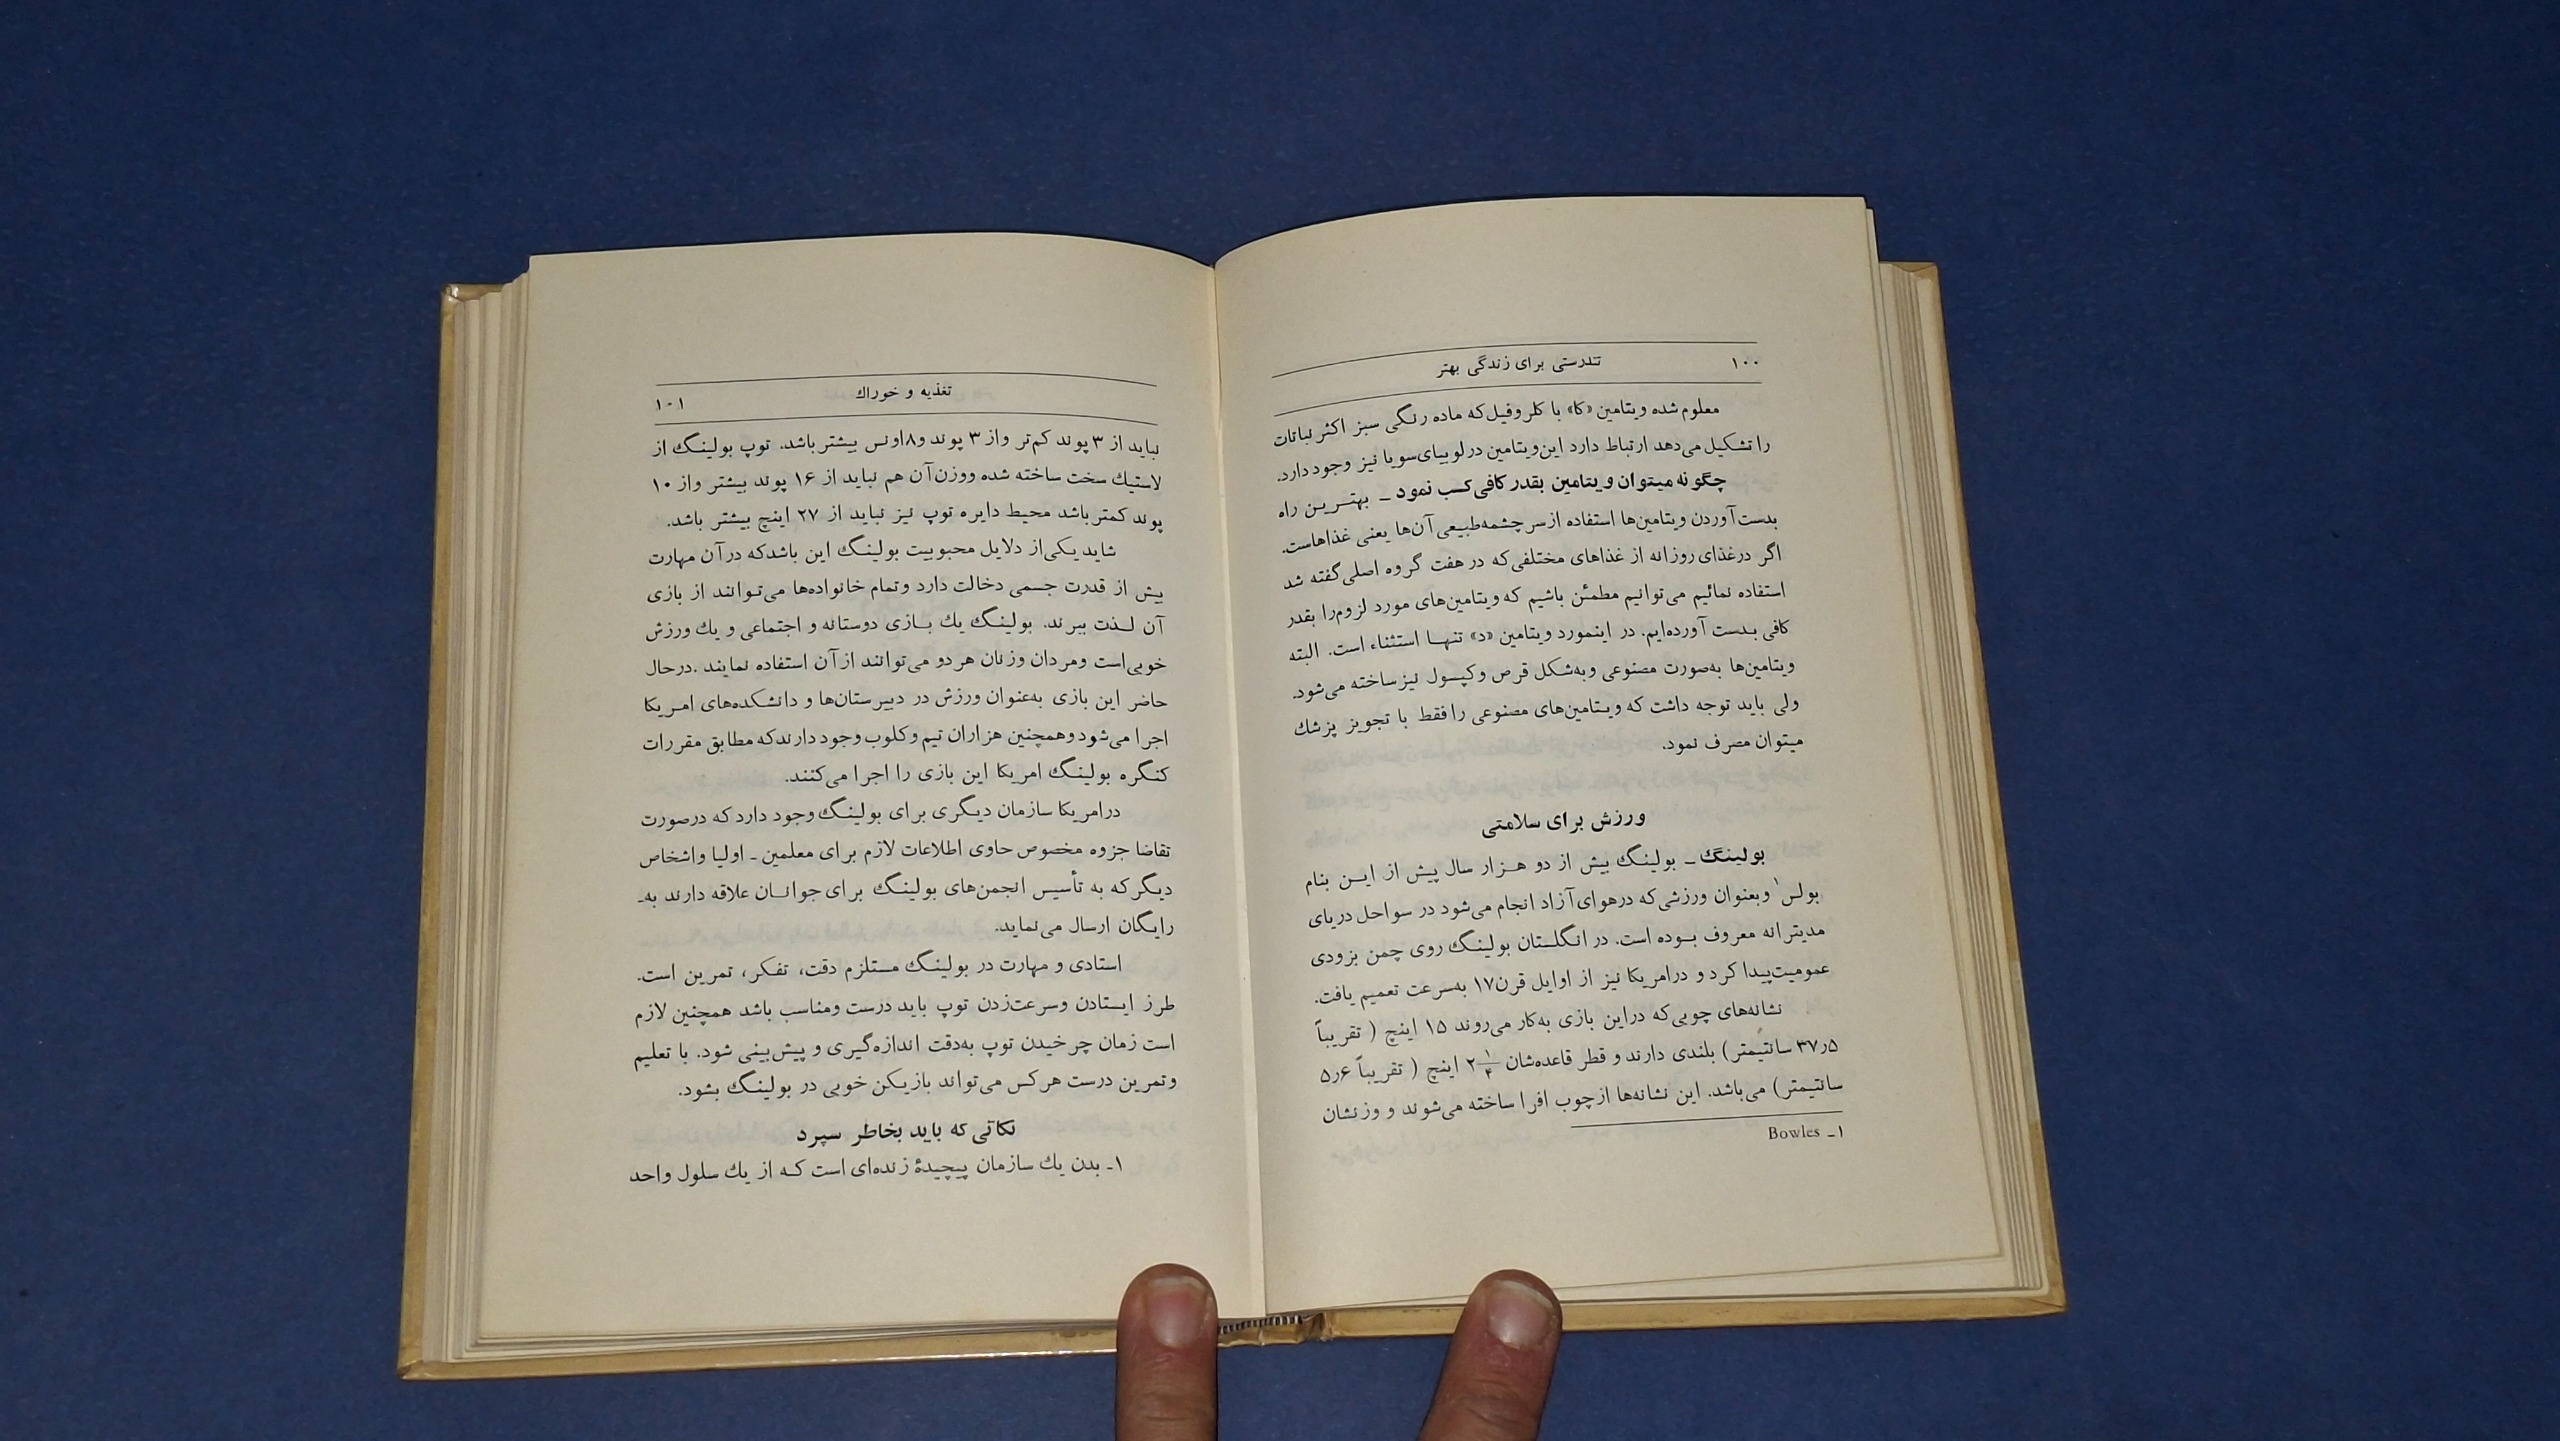 ۱۰۰ تندرستی برای زندگی بهتر
معلوم شده ویتامین «کا» با کلروفیل که ماده رنگی سبز اکثر نباتات
را تشکیل می‌دهد ارتباط دارد این ویتامین در لوبیای سویا نیز وجود دارد.
چگونه میتوان ویتامین بقدر کافی کسب نمود ـ بهترین راه
بدست آوردن ویتامین‌ها استفاده از سرچشمه طبیعی آن‌ها یعنی غذاهاست.
اگر درغذای روزانه از غذاهای مختلفی که در هفت گروه اصلی گفته شد
استفاده نمائیم می‌توانیم مطمئن باشیم که ویتامین‌های مورد لزوم را بقدر
کافی بدست آورده‌ایم. در اینمورد ویتامین «د» تنها استثناء است. البته
ویتامین‌ها به‌صورت مصنوعی وبه‌شکل قرص وکپسول نیز ساخته می‌شود.
ولی باید توجه داشت که ویتامین‌های مصنوعی را فقط با تجویز پزشك
میتوان مصرف نمود.
ورزش برای سلامتی
بولینگ ـ بولینگ بیش از دو هزار سال پیش از این بنام
بولس۱ وبعنوان ورزشی که درهوای آزاد انجام می‌شود در سواحل دریای
مدیترانه معروف بوده است. در انگلستان بولینگ روی چمن بزودی
عمومیت پیدا کرد و در امریکا نیز از اوایل قرن ۱۷ به‌سرعت تعمیم یافت.
نشانه‌های چوبی که دراین بازی به‌کار می‌روند ۱۵ اینچ ( تقریباً
۳۷٫۵ سانتیمتر) بلندی دارند و قطر قاعده‌شان ۲ ۱/۴ اینچ ( تقریباً ۵٫۶
سانتیمتر) می‌باشد. این نشانه‌ها ازچوب افرا ساخته می‌شوند و وزنشان
۱ـ Bowles
تغذیه و خوراك ۱۰۱
نباید از ۳ پوند کم‌تر واز ۳ پوند و۸ اونس بیشتر باشد. توپ بولینگ از
لاستیك سخت ساخته شده ووزن آن هم نباید از ۱۶ پوند بیشتر واز ۱۰
پوند کمتر باشد محیط دایره توپ نیز نباید از ۲۷ اینچ بیشتر باشد.
شاید یکی از دلایل محبوبیت بولینگ این باشد که در آن مهارت
بیش از قدرت جسمی دخالت دارد وتمام خانواده‌ها می‌توانند از بازی
آن لذت ببرند. بولینگ یك بازی دوستانه و اجتماعی و یك ورزش
خوبی است ومردان وزنان هر دو می‌توانند از آن استفاده نمایند .درحال
حاضر این بازی به‌عنوان ورزش در دبیرستان‌ها و دانشکده‌های امریکا
اجرا می‌شود وهمچنین هزاران تیم وکلوب وجود دارند که مطابق مقررات
کنگره بولینگ امریکا این بازی را اجرا می‌کنند.
درامریکا سازمان دیگری برای بولینگ وجود دارد که درصورت
تقاضا جزوه مخصوص حاوی اطلاعات لازم برای معلمین ـ اولیا واشخاص
دیگر که به تأسیس انجمن‌های بولینگ برای جوانان علاقه دارند به‌ـ
رایگان ارسال می‌نماید.
استادی و مهارت در بولینگ مستلزم دقت، تفکر، تمرین است.
طرز ایستادن وسرعت زدن توپ باید درست ومناسب باشد همچنین لازم
است زمان چرخیدن توپ به‌دقت اندازه‌گیری و پیش‌بینی شود. با تعلیم
وتمرین درست هر کس می‌تواند بازیکن خوبی در بولینگ بشود.
نکاتی که باید بخاطر سپرد
۱ـ بدن یك سازمان پیچیدهٔ زنده‌ای است که از یك سلول واحد